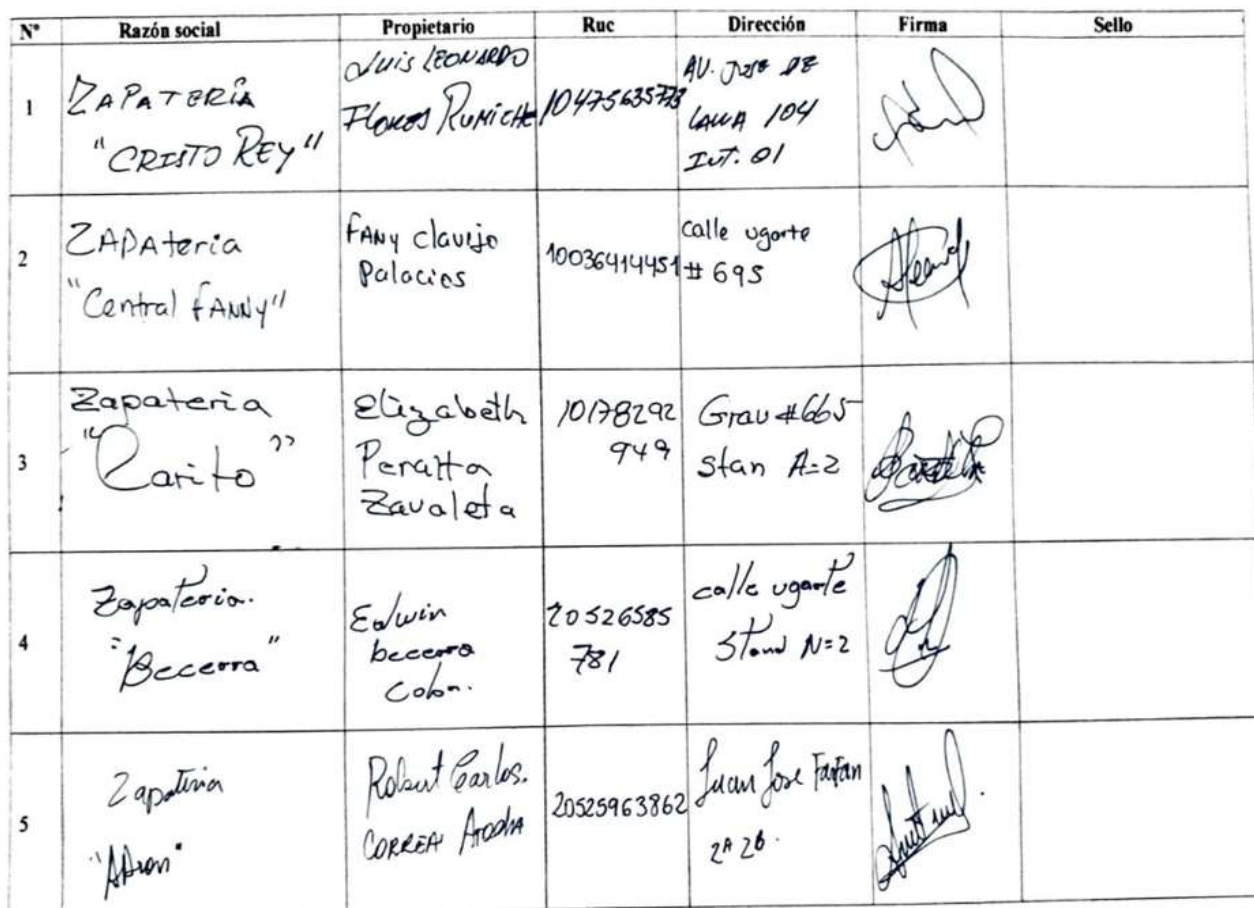 N° Razón social Propietario Ruc Dirección Firma Sello
1
ZAPATERÍA
"CRISTO REY"
Luis LEONARDO
FLORES RUMICHE
10475635773
AV. JOSE DE
LAMA 104
INT. 01
2
ZAPAteria
"Central FANNY"
FANY clavijo
Palacios
10036414451
calle ugarte
# 695
3
Zapateria
"Carito"
Elizabeth
Peralta
Zavaleta
10178292
949
Grau #665
Stan A=2
4
Zapateria.
"Becerra"
Edwin
becerra
Colon.
20526585
781
calle ugarte
Stand N=2
5
Zapateria
Robert Carlos.
CORREA
20525963862
Juan Jose Farfan
2A 2B.